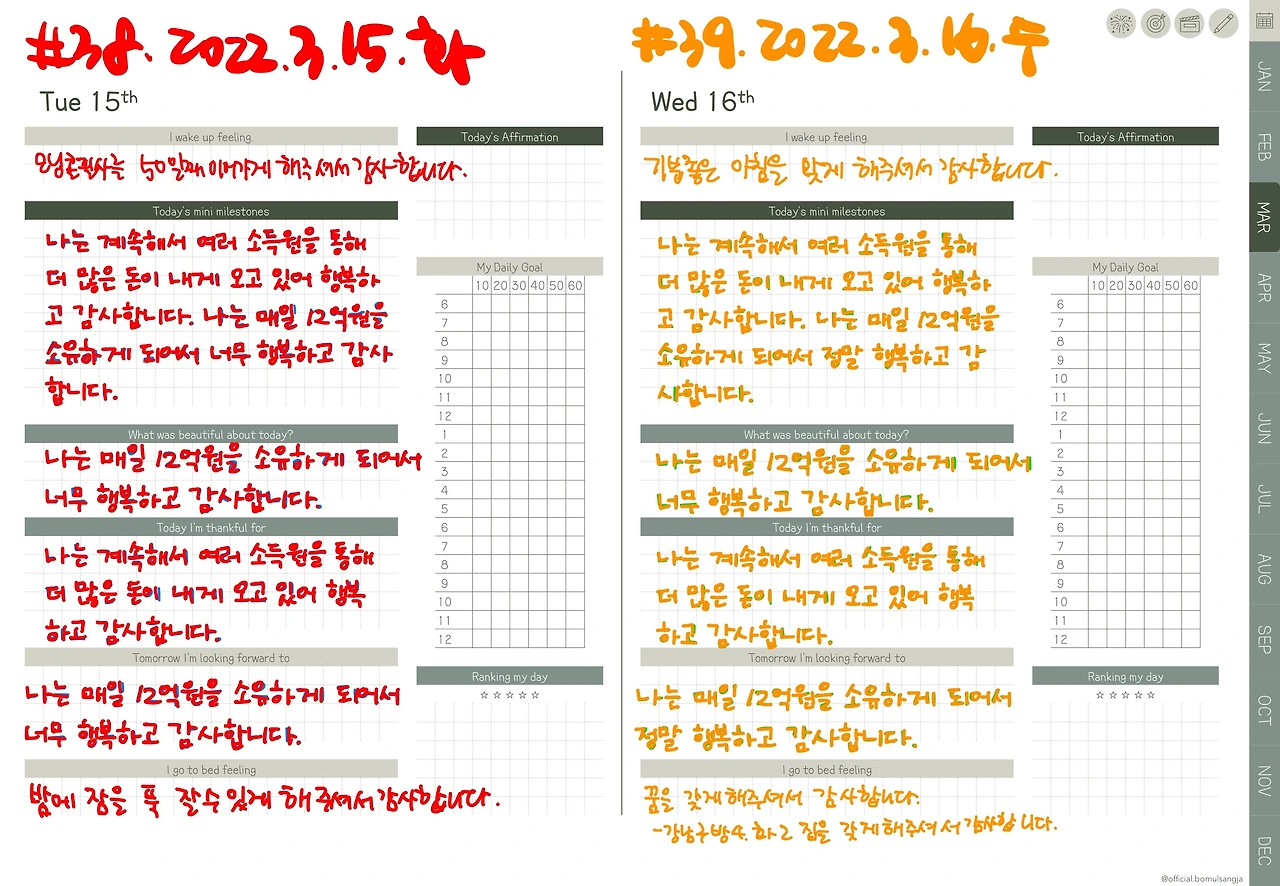 #38. 2022. 3. 15. 화
Tue 15th
I wake up feeling.
50일째 이어가게 해주셔서 감사합니다.
Today's mini milestones
나는 계속해서 여러 소득원을 통해
더 많은 돈이 내게 오고 있어 행복하
고 감사합니다. 나는 매일 12억원을
소유하게 되어서 너무 행복하고 감사
합니다.
What was beautiful about today?
나는 매일 12억원을 소유하게 되어서
너무 행복하고 감사합니다.
Today I'm thankful for
나는 계속해서 여러 소득원을 통해
더 많은 돈이 내게 오고 있어 행복
하고 감사합니다.
Tomorrow I'm looking forward to
나는 매일 12억원을 소유하게 되어서
너무 행복하고 감사합니다.
I go to bed feeling
밤에 잠을 푹 잘 수 있게 해주셔서 감사합니다.
Today's Affirmation
My Daily Goal
10 20 30 40 50 60
6
7
8
9
10
11
12
1
2
3
4
5
6
7
8
9
10
11
12
Ranking my day
☆☆☆☆☆
#39. 2022. 3. 16. 수
Wed 16th
I wake up feeling.
기분좋은 아침을 맞게 해주셔서 감사합니다.
Today's mini milestones
나는 계속해서 여러 소득원을 통해
더 많은 돈이 내게 오고 있어 행복하
고 감사합니다. 나는 매일 12억원을
소유하게 되어서 정말 행복하고 감
사합니다.
What was beautiful about today?
나는 매일 12억원을 소유하게 되어서
너무 행복하고 감사합니다.
Today I'm thankful for
나는 계속해서 여러 소득원을 통해
더 많은 돈이 내게 오고 있어 행복
하고 감사합니다.
Tomorrow I'm looking forward to
나는 매일 12억원을 소유하게 되어서
정말 행복하고 감사합니다.
I go to bed feeling
꿈을 갖게 해주셔서 감사합니다.
-강남구 방4, 화2 집을 갖게 해주셔서 감사합니다.
Today's Affirmation
My Daily Goal
10 20 30 40 50 60
6
7
8
9
10
11
12
1
2
3
4
5
6
7
8
9
10
11
12
Ranking my day
☆☆☆☆☆
JAN
FEB
MAR
APR
MAY
JUN
JUL
AUG
SEP
OCT
NOV
DEC
@official.bomulsangja